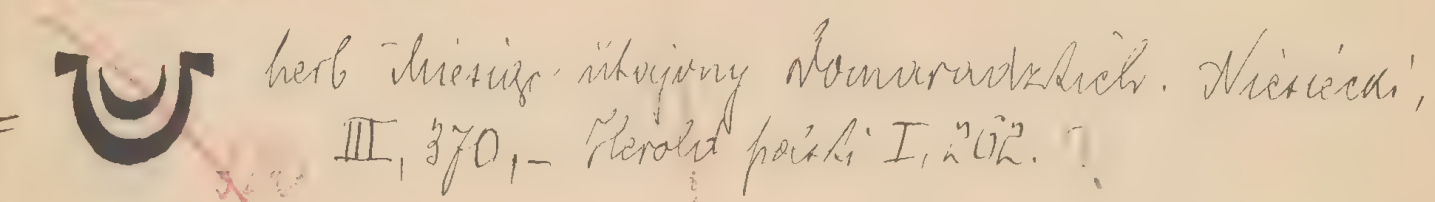 = herb Miesiąc utajony Domaradzkich. Niesiecki,
III, 370, – Herold polski I, 202.